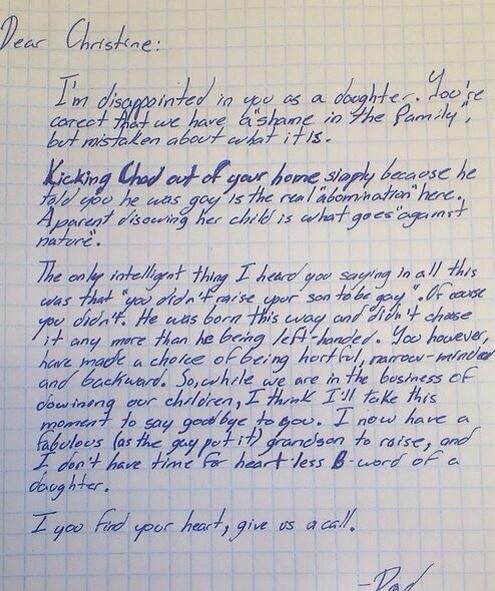 Dear Christine:
I'm disappointed in you as a daughter. You're
correct that we have a "shame in the family",
but mistaken about what it is.
Kicking Chad out of your home simply because he
told you he was gay is the real "abomination" here.
A parent disowning her child is what goes "against
nature".
The only intelligent thing I heard you saying in all this
was that "you didn't raise your son to be gay". Of course
you didn't. He was born this way and didn't choose
it any more than he being left-handed. You however,
have made a choice of being hurtful, narrow-minded
and backward. So, while we are in the business of
disowning our children, I think I'll take this
moment to say goodbye to you. I now have a
fabulous (as the gay put it) grandson to raise, and
I don't have time for heart-less B-word of a
daughter.
I you find your heart, give us a call.
-Dad